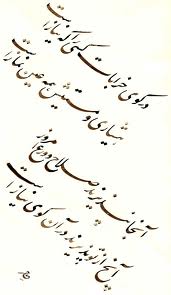 در کوی خرابات کسی را که نیاز است
هشیاری و مستیش همه عین نماز است
آنجا نپذیرند صلاح و ورع امروز
آنچ از تو پذیرند در آن کوی نیاز است